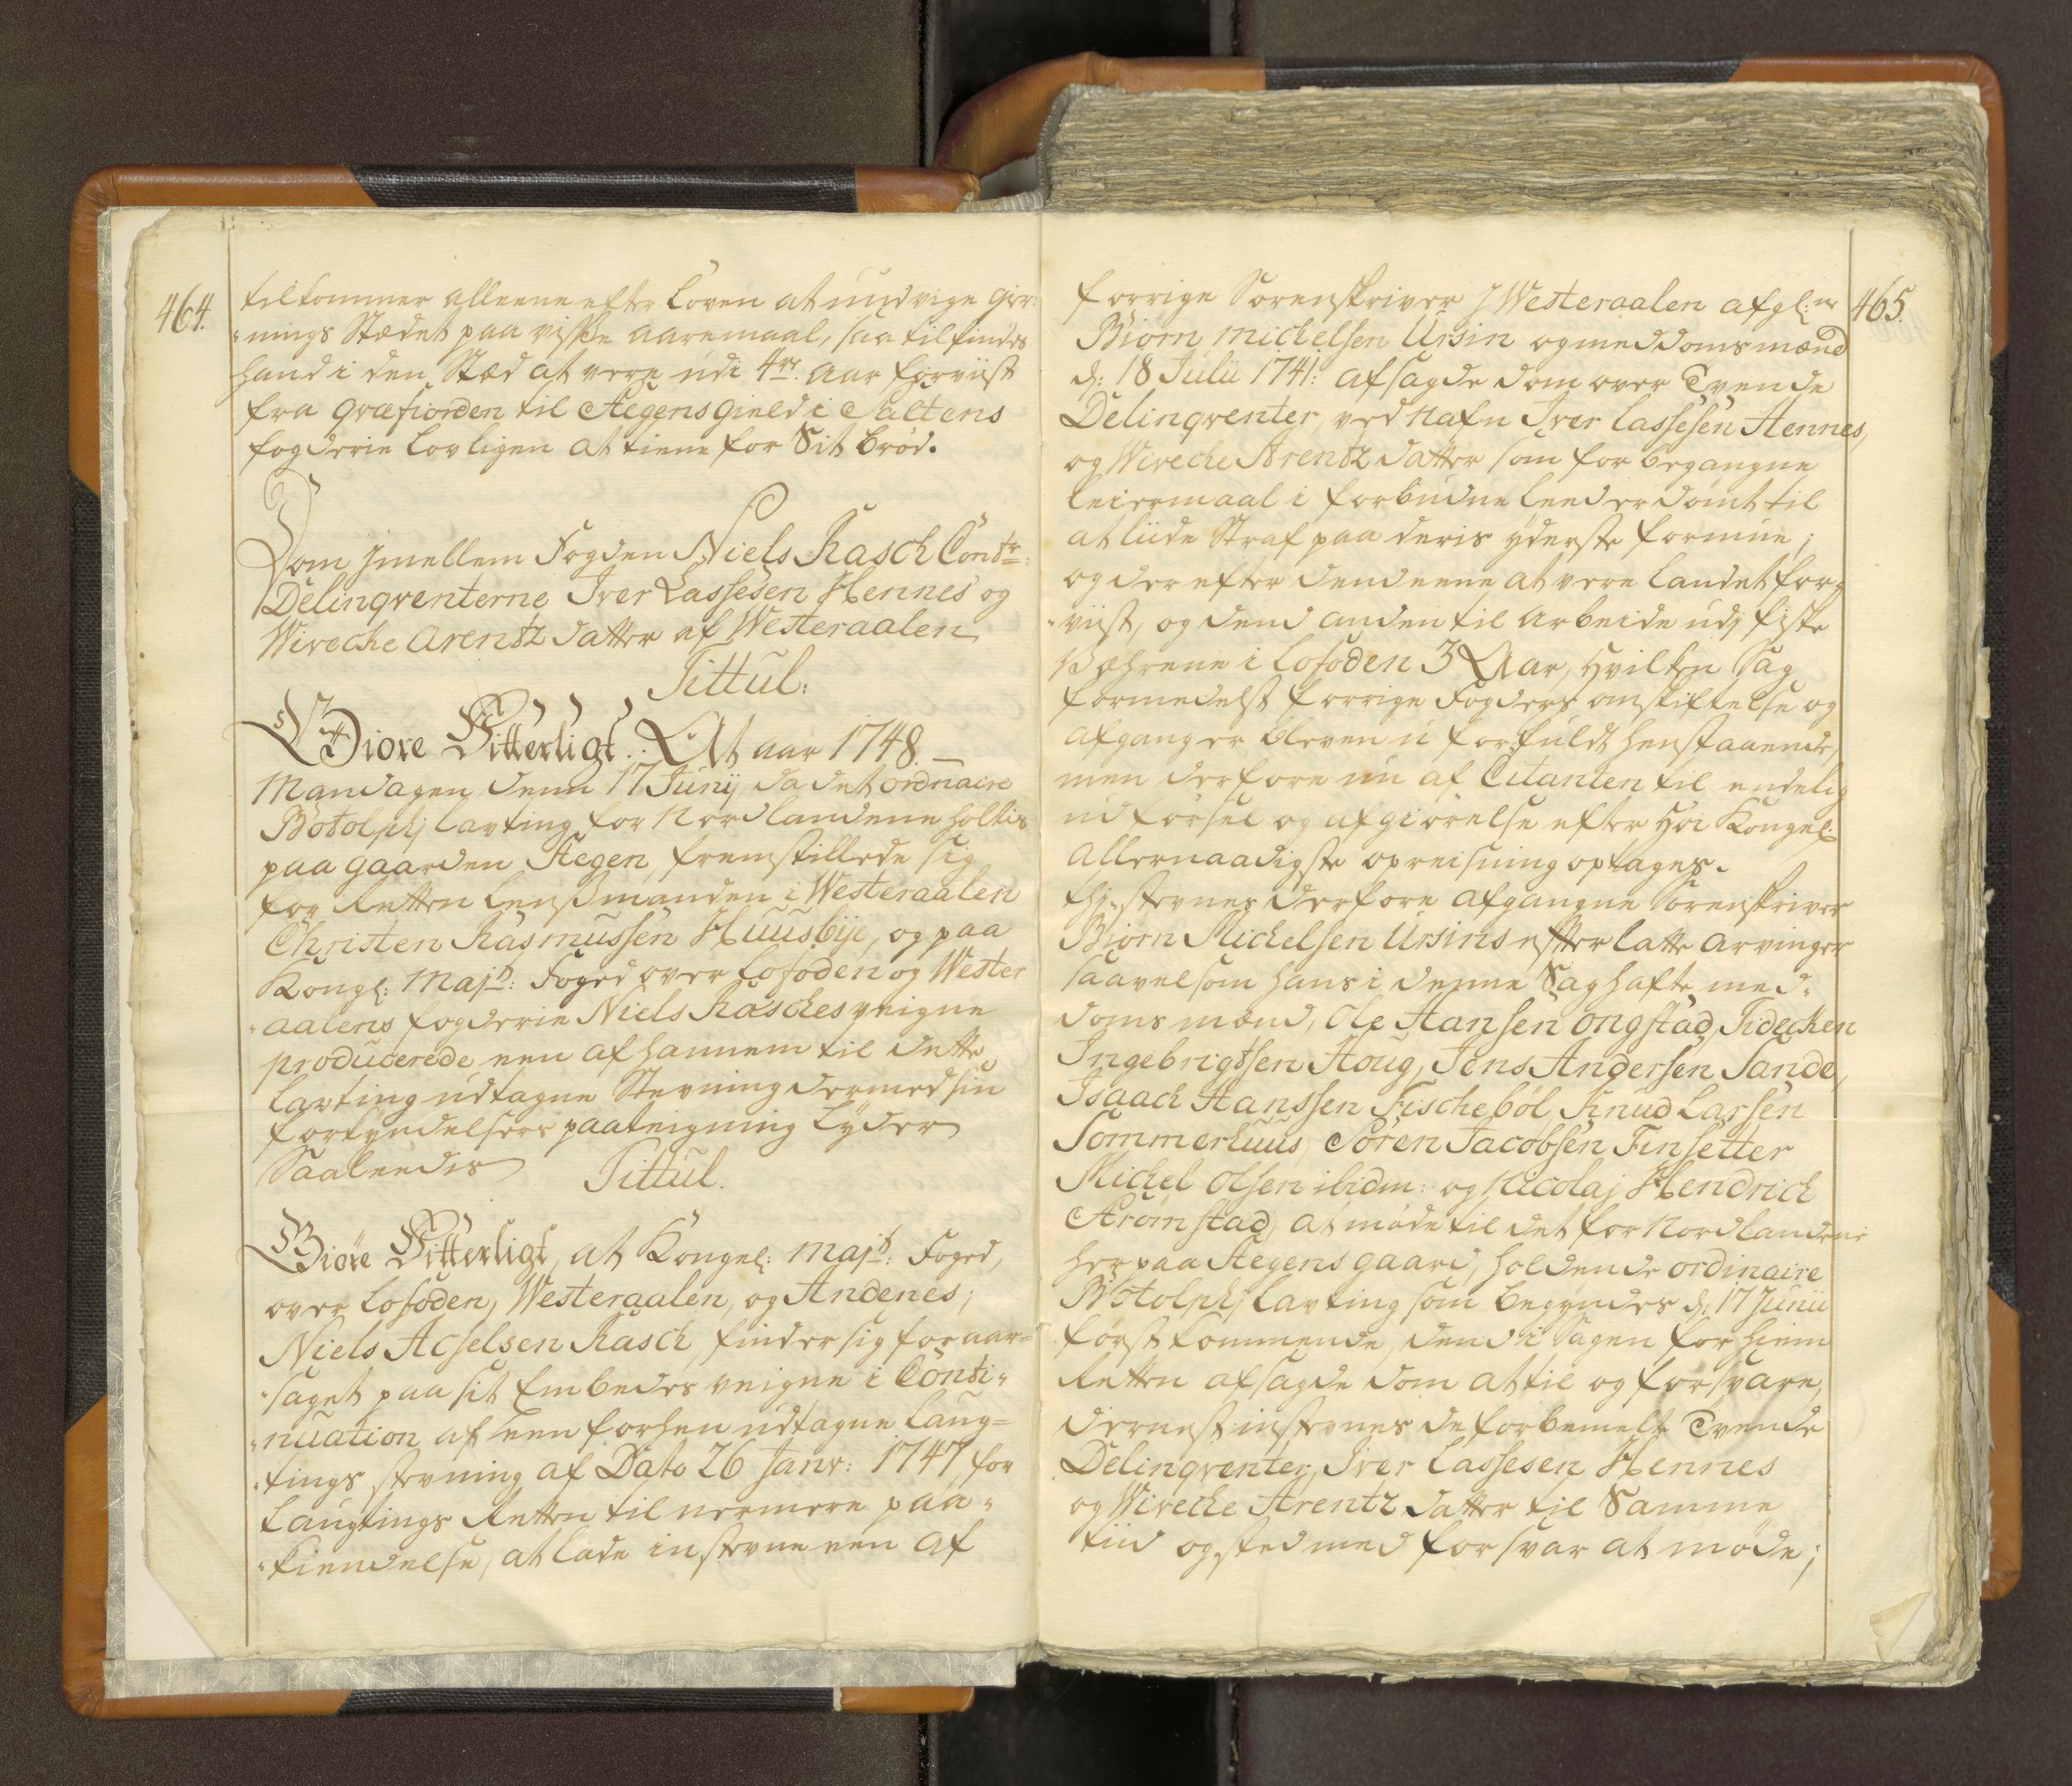 464.
tilkommer alleene efter Loven at undvige gier-
nings Stædet paa visse aaremaal, saa tilfindes
hand i den Stæd at vere udi 4re. aar forviist
fra Qvæfiorden til Stegens gield i Saltens
fogderie Lovligen at tiene for Sit brød.
Dom jmellem Fogden Niels Rasch Contr:
Delinqventerne Iver Lassesen Hennes og
Wiveche Arentz datter af Westeraalen
Tittul:
Giøre Vitterligt: At aar 1748.
Mandagen denn 17 Junij da det ordnaire
Botolphj Lavting for Nordlandene holtis
paa gaarden Stegen, fremstillede sig
for Retten Lensmanden i Westeraalen
Christen Rasmussen Huusbije, og paa
Kongl: Majts: Foged over Lofoden og Wester
aalens fogderie Niels Rasches veigne
producerede een af hannem til dette
Lavting udtagne Stevning dermed sin
forkyndelsers paateigning Lyder
Saaleedis Tittul.
Giøre Vitterligt, at Kongel: Majts: Foged,
over Lofoden, Westeraalen, og Andenes;
Niels Acselsen Rasch, finder sig foraar-
saget paa sit Embedes veigne i Conti-
nuation af een forhen udtagne Laug-
tings stevning af Dato 26 Janv: 1747, for
Laugtings Retten til nermere paa-
kiendelse, at lade instevne een af
465.
forrige Sorenskriver j Westeraalen afgl:ne
Biørn Michelsen Ursin og meddomsmænd
d: 18 Julii 1741: afsagde dom over Tvende
Delinqventer ved Nafn Iver Lassesen Hennes,
og Wiveche Arentz datter som for begangne
Leiermaal i forbudne Leed er dømt til
at liide Straf paa deris yderste formue;
og derefter dend eene at vere Landet for-
viist, og dend anden til arbeide udj fiske
Værene i Lofoden 3 Aar, hvilken Sag
formedelst forrige Fogders omskiftelse og
afgang er bleven u forfuldt henstaaende,
men derfore nu af Citanten til endelig
udførsel og afgiørelse efter høi Kongel:
allernaadigste opreisning optages.
Thj stevnes derfore afgangne Sorenskriver
Biørn Michelsen Ursins efterlatte arvinger
saavelsom hans i denne Sag hafte med-
doms mænd, Ole Hansen Ongstad, Tidechen
Ingebrigtsen Houg, Jens Andersen Sande,
Isaach Hanssen Fischebøl Knud Larsen
Sommerhuus, Søren Jacobsen Finsetter
Michel Olsen ibidm: og Nicolaj Hendrich
Strømstad, at møde til det for Nordlandene
her paa Stegens gaard, holdende ordinaire
Botolphj Lavting som begyndes d: 17 Junii
førstkommende, dend i Sagen for hiem
Retten afsagde dom at til og forsvare,
dernest instevnes de forbemelte Tvende
Delinqventer, Iver Lassesen Hennes
og Wiveche Arentz datter til Samme
tiid og sted med forsvar at møde;